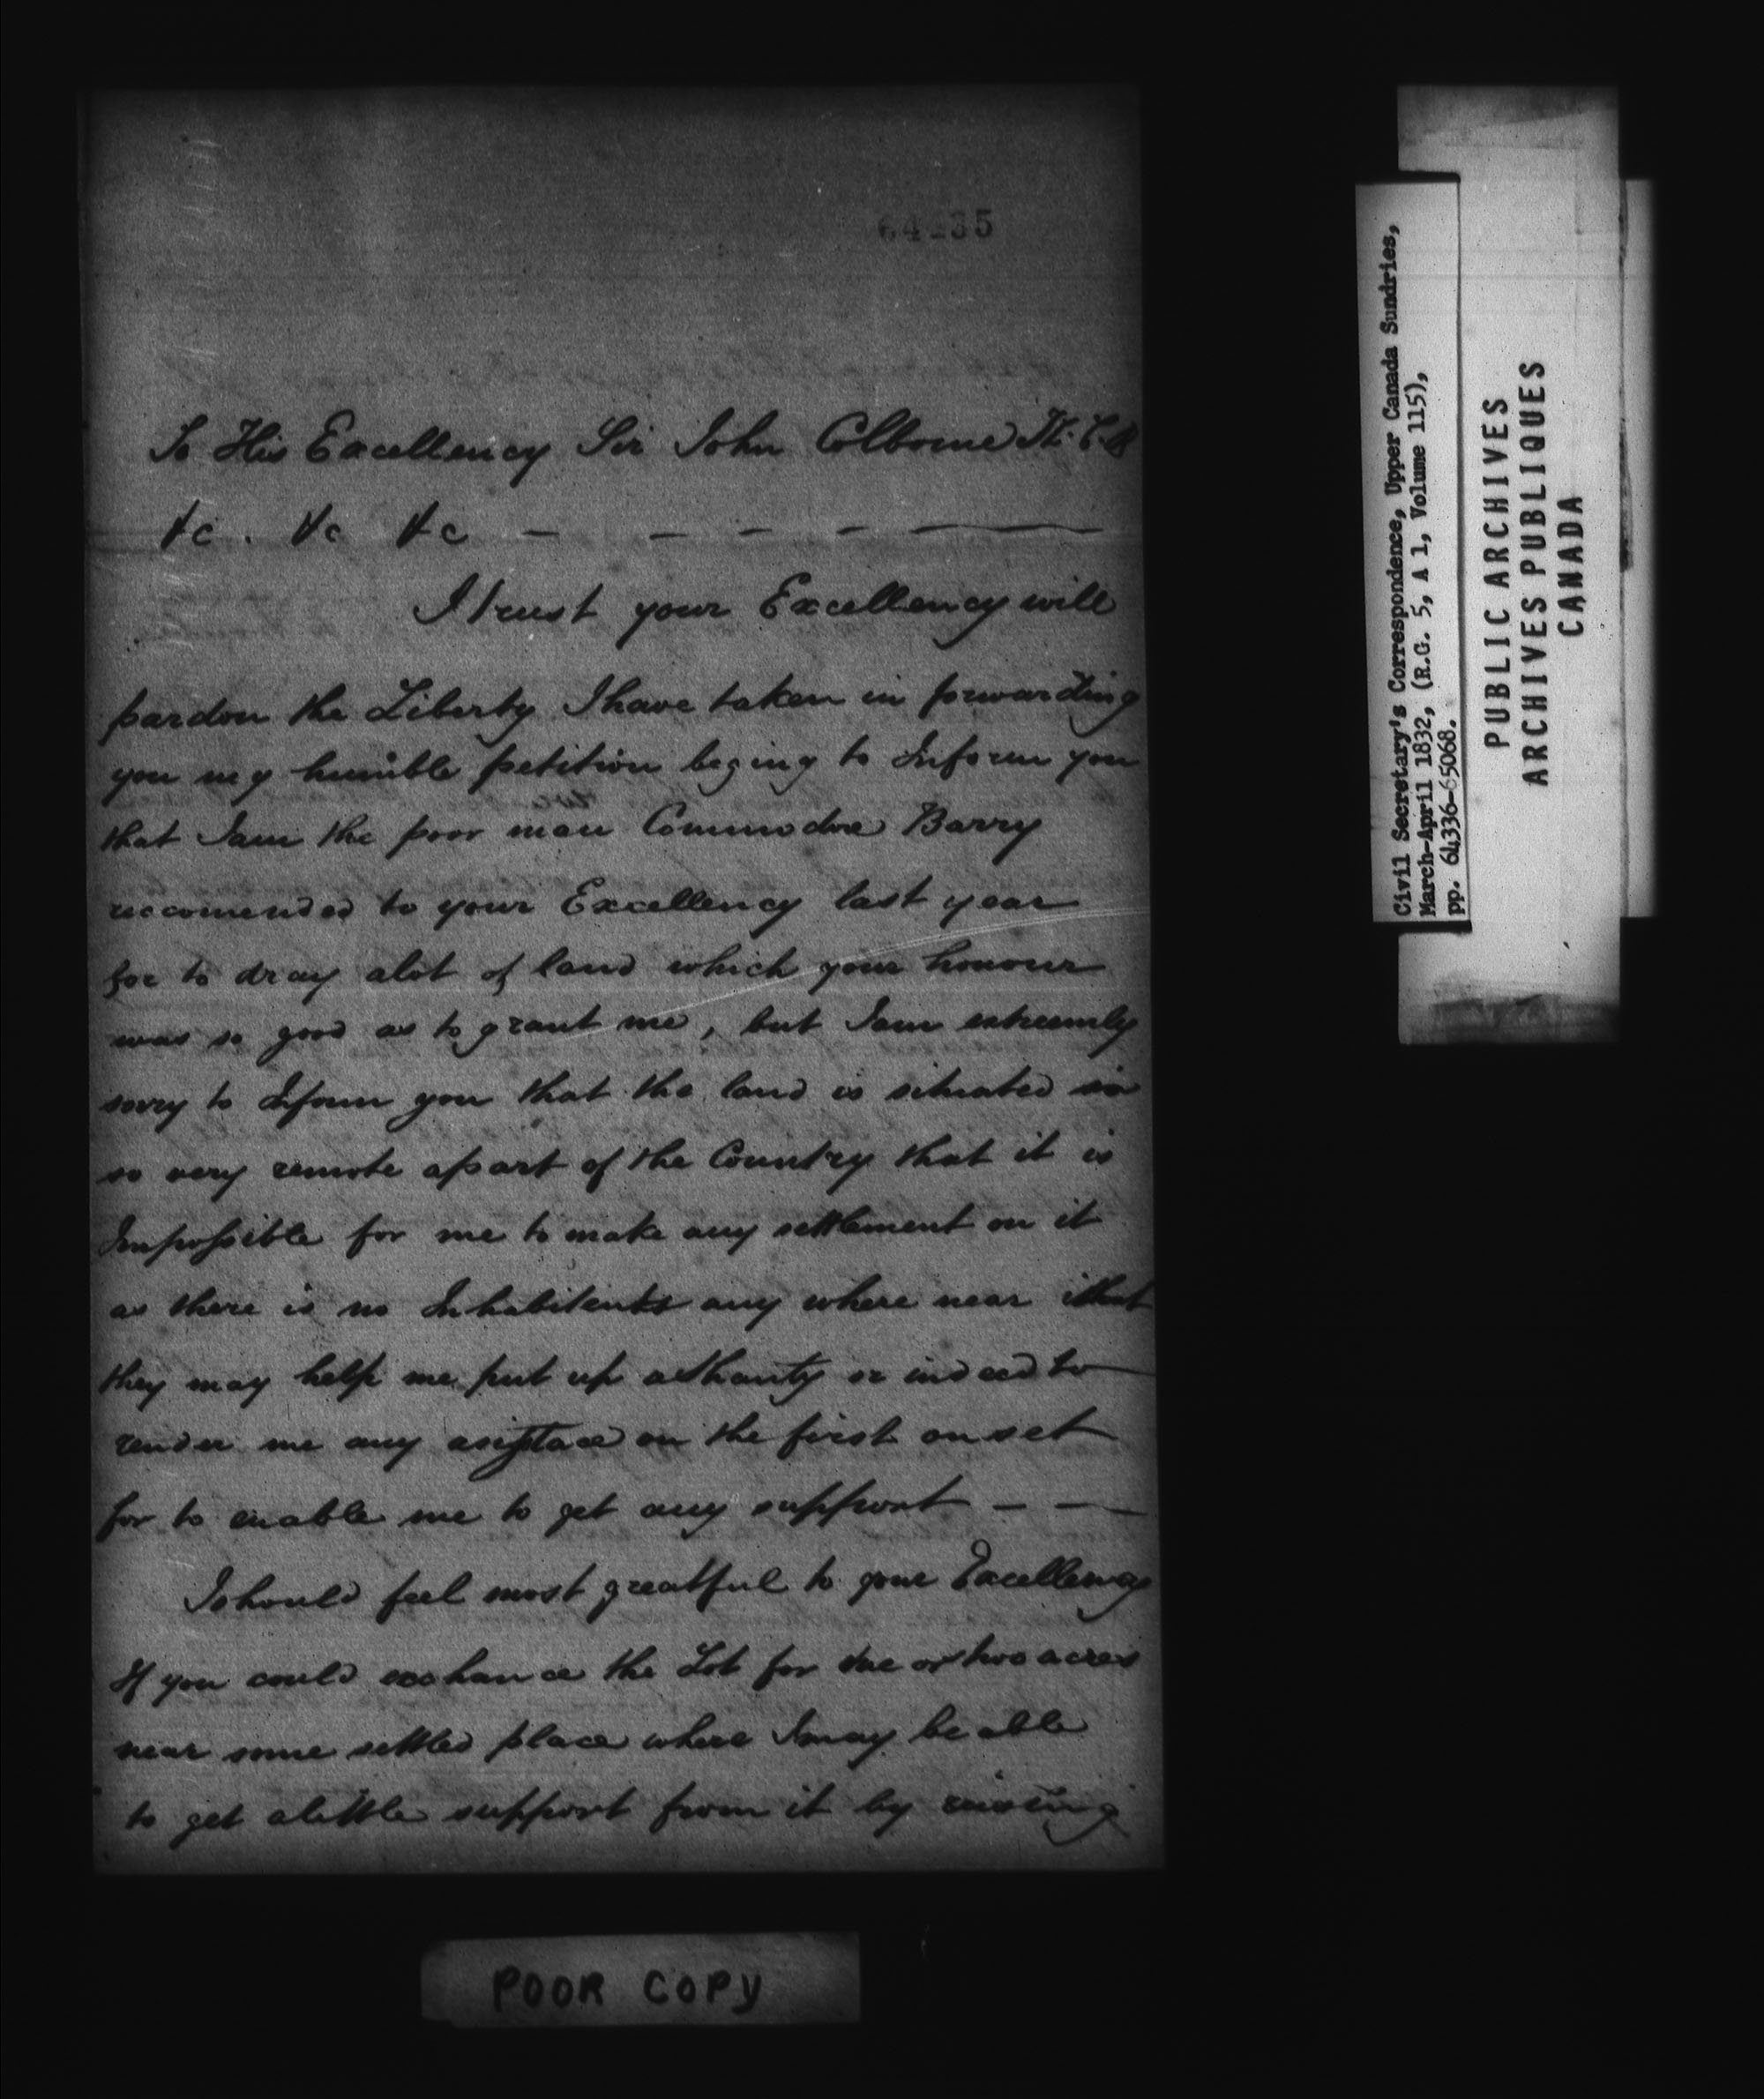 To His Excellency Sir John Colborne K. C. B
&c. &c &c — — — — ——
I trust your Excellency will
pardon the Liberty I have taken in forwarding
you my humble petition beging to Inform you
that I am the poor man Commodore Barry
reccomended to your Excellency last year
for to dray alot of land which your honour
was so good as to grant me, but I am extreemly
sorry to Inform you that the land is situated in
so very remote apart of the Country that it is
Impossible for me to make any settlement on it
as there is no Inhabitents any where near it that
they may help me put up a Shanty or indeed to
render me any asistace on the first onset
for to enable me to get any support — —
I should feel most greatful to your Excellency
If you could exchance the Lot for one or two acres
near some settled place where I may be able
to get alittle support from it by raising
POOR COPY
Civil Secretary's Correspondence, Upper Canada Sundries,
March-April 1832, (R.G. 5, A 1, Volume 115),
pp. 64336-65068.
PUBLIC ARCHIVES
ARCHIVES PUBLIQUES
CANADA